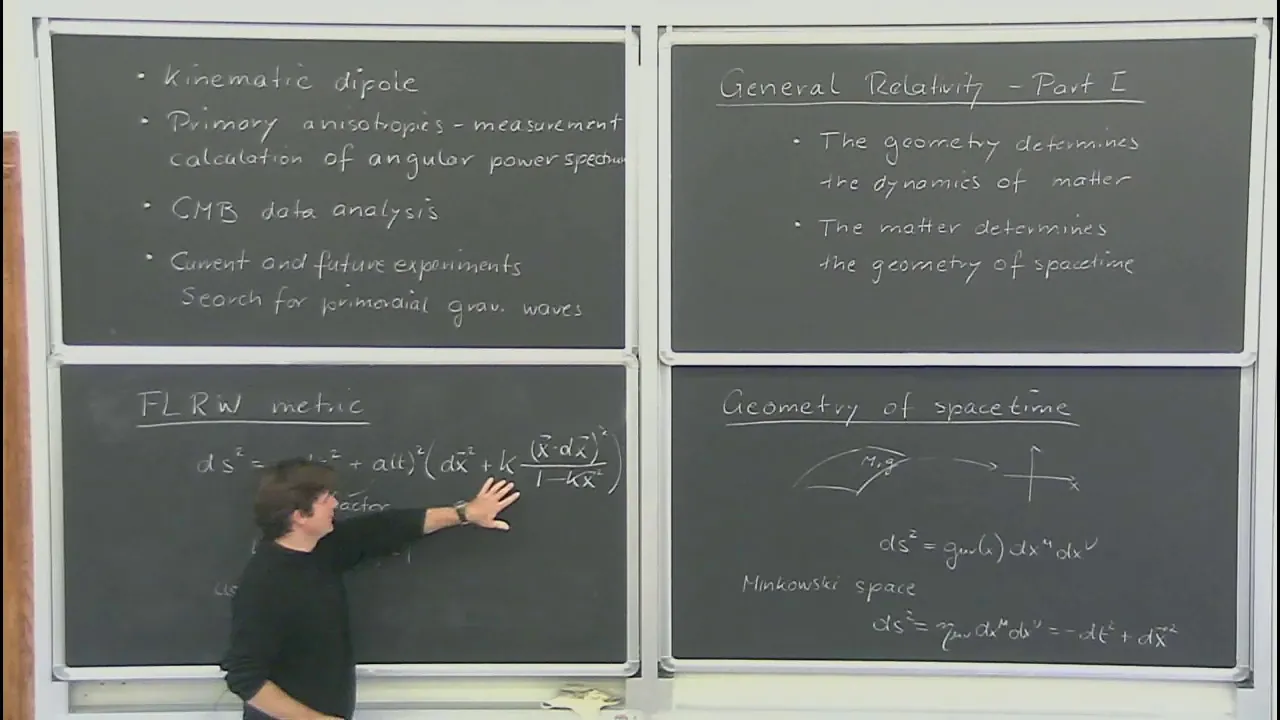 • Kinematic dipole
• Primary anisotropies – measurement
calculation of angular power spectrum
• CMB data analysis
• Current and future experiments
Search for primordial grav. waves
General Relativity – Part I
• The geometry determines
the dynamics of matter
• The matter determines
the geometry of spacetime
FLRW metric
ds² = + a(t)² (dx⃗² + k (x⃗·dx⃗)² / 1−kx⃗²)
Geometry of spacetime
M, g
x
ds² = gμν(x) dxᵘ dxᵛ
Minkowski space
ds² = ημν dxᵘ dxᵛ = −dt² + dx⃗²